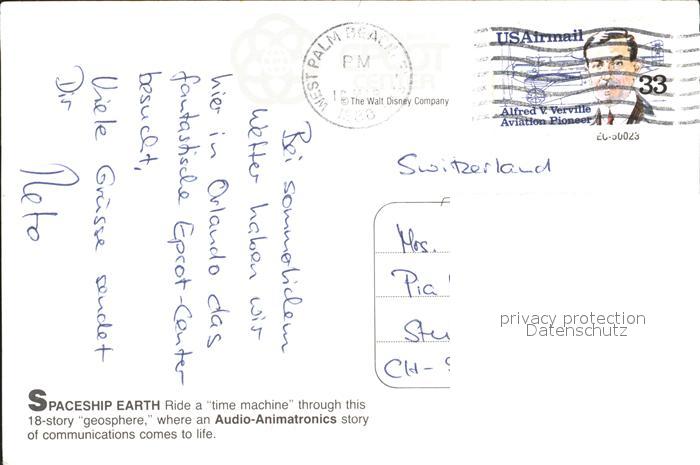 WEST PALM BEACH
PM
1986
© The Walt Disney Company
USAirmail
33
Alfred V. Verville
Aviation Pioneer
EC-50023
Switzerland
Mrs.
Pia
CH-
privacy protection
Datenschutz
Bei sommerlichem
Wetter haben wir
hier in Orlando das
fantastische Epcot-Center
besucht.
Viele Grüsse sendet
Dir
Reto
SPACESHIP EARTH Ride a "time machine" through this
18-story "geosphere," where an Audio-Animatronics story
of communications comes to life.